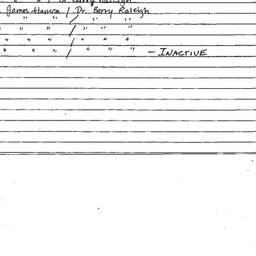 James Hansen / Dr. Barry Raleigh
" " / " " "
" " " / " " "
" " " / " " "
" " " / " " " - INACTIVE